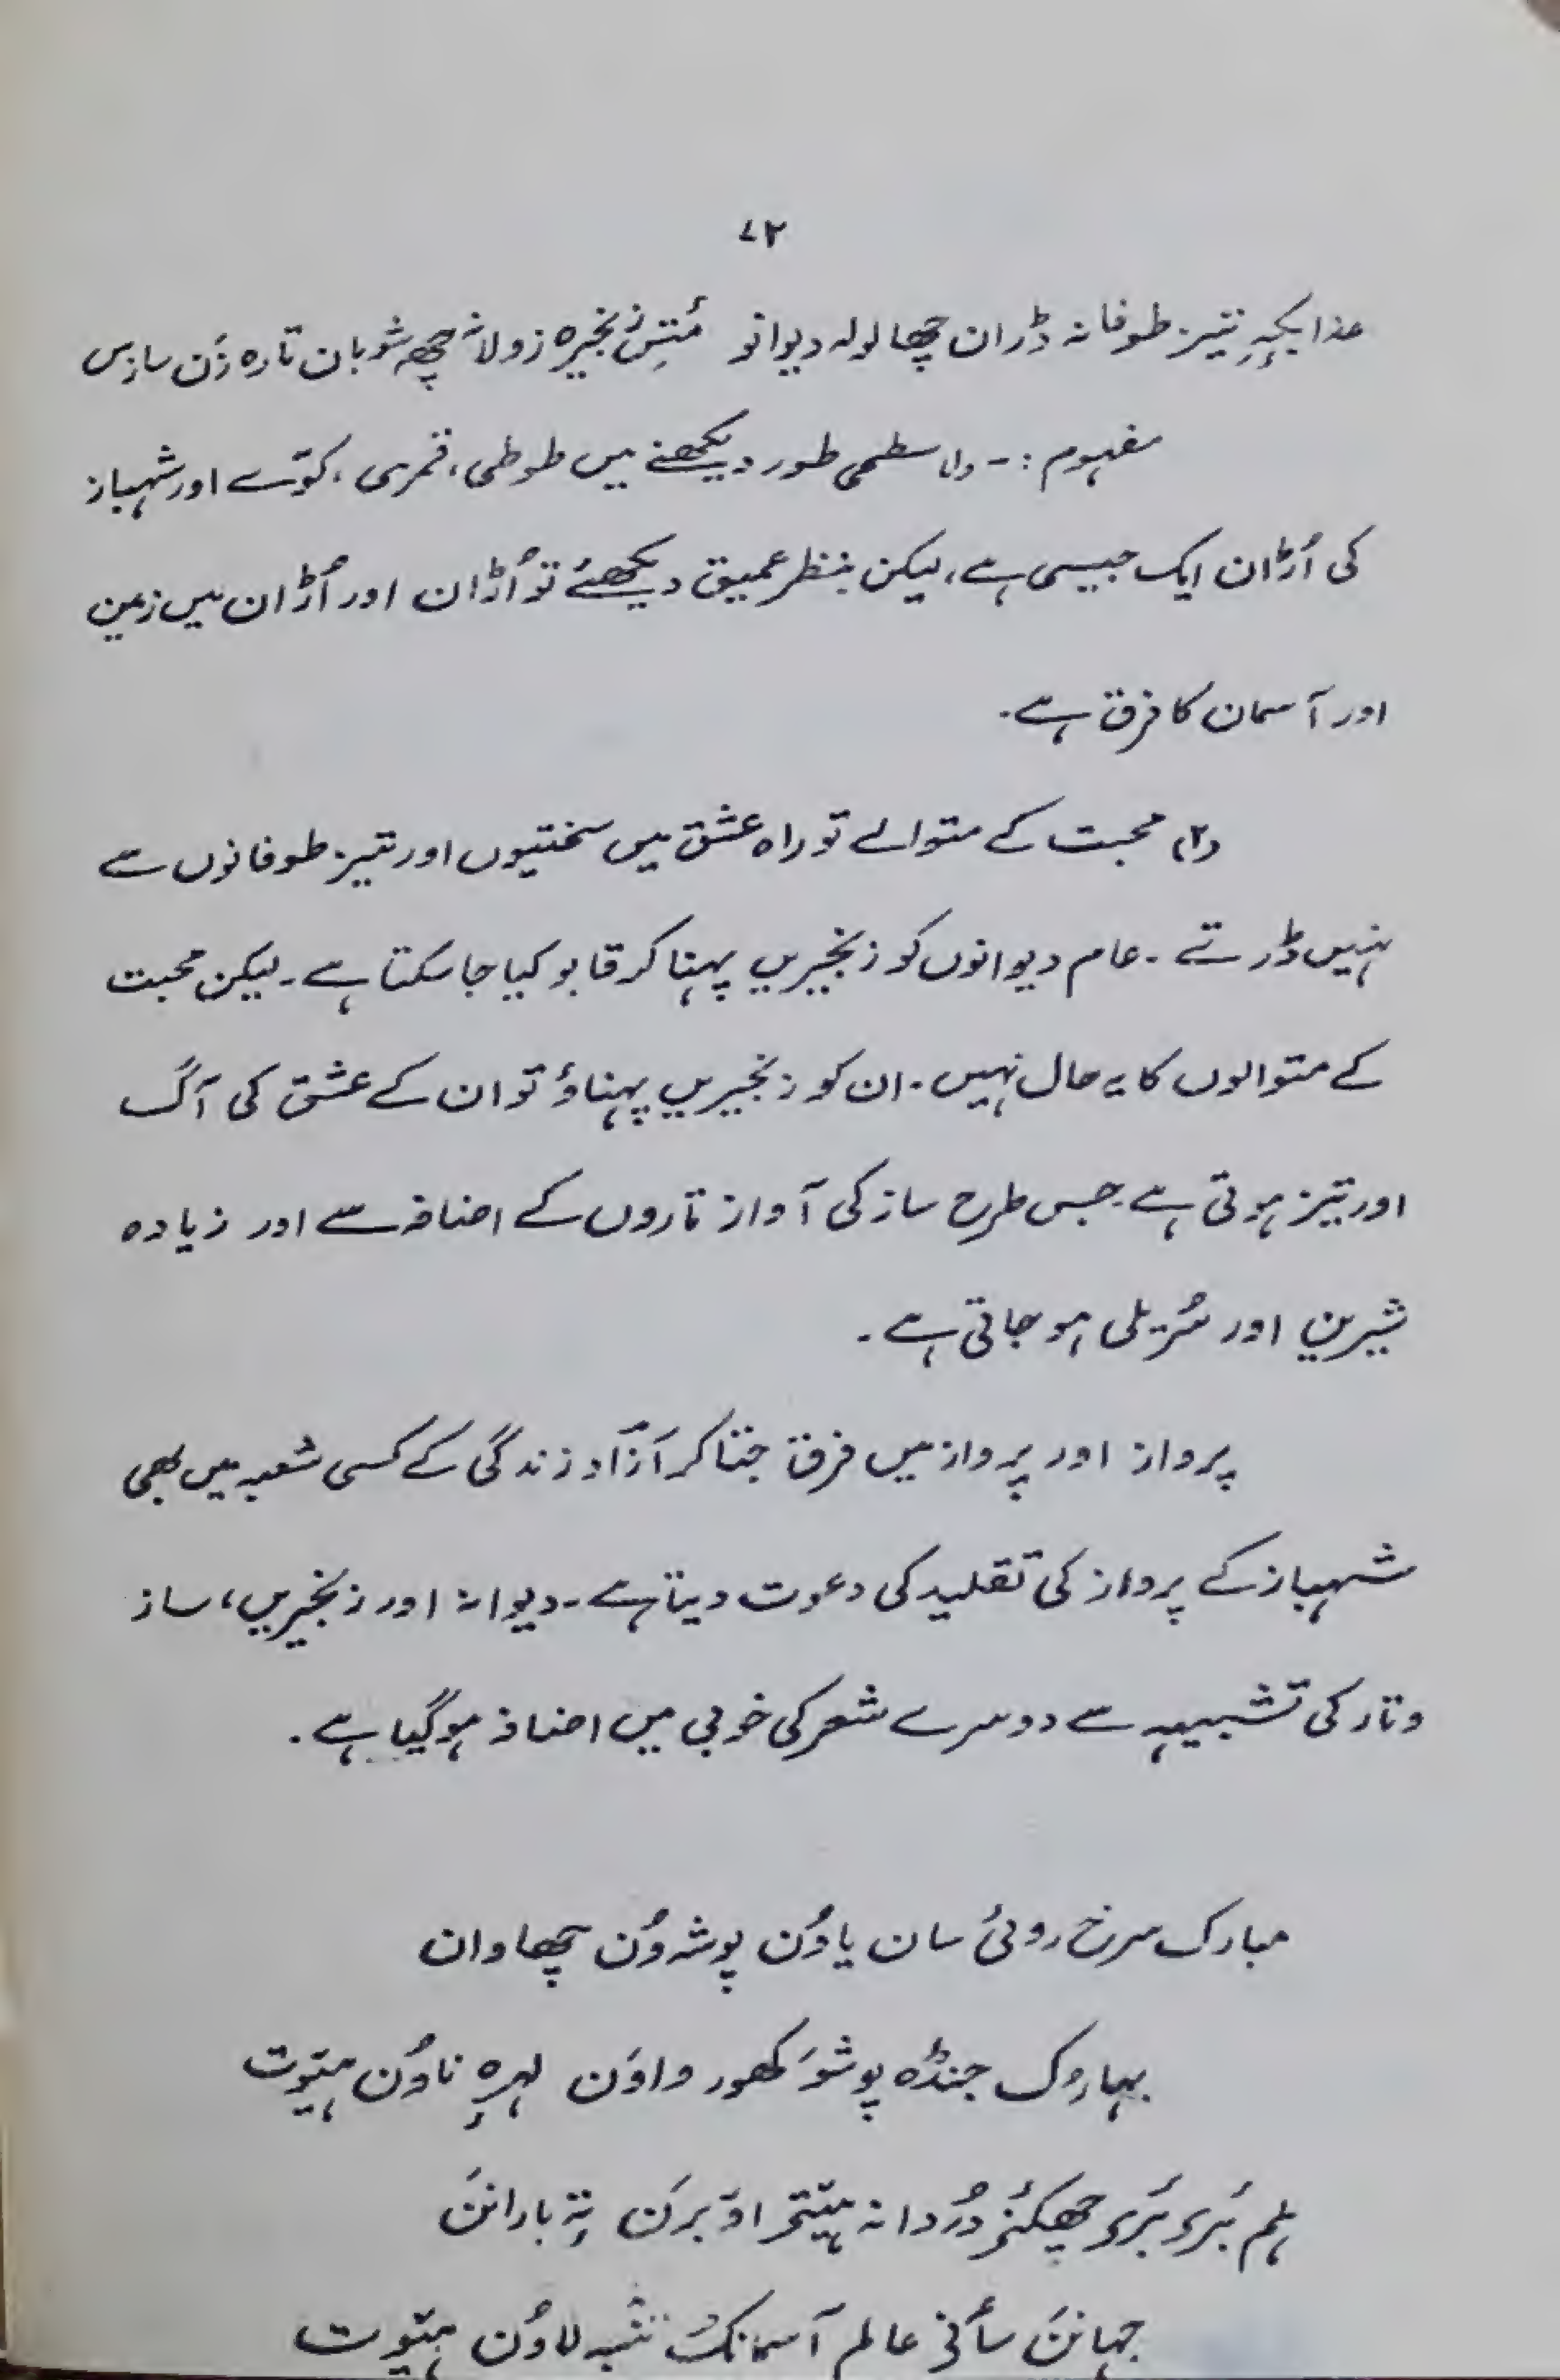 ۷۲
عذابکہِ تیز طوفانہ ڈران چھا لولہ دیوانو مُتِس زنجیرہ زولانہٕ چھِ شوبان تارہ زَن سازس
مفہوم :- (۱) سطحی طور دیکھنے میں طوطی، قمری، کوّے اور شہباز
کی اُڑان ایک جیسی ہے، لیکن بنظرِ عمیق دیکھئے تو اُڑان اور اُڑان میں زمین
اور آسمان کا فرق ہے۔
(۲) محبت کے متوالے تو راہ عشق میں سختیوں اور تیز طوفانوں سے
نہیں ڈرتے ۔ عام دیوانوں کو زنجیریں پہنا کر قابو کیا جا سکتا ہے۔ لیکن محبت
کے متوالوں کا یہ حال نہیں۔ ان کو زنجیریں پہناؤ تو ان کے عشق کی آگ
اور تیز ہوتی ہے۔ جس طرح ساز کی آواز تاروں کے اضافہ سے اور زیادہ
شیرین اور سُریلی ہو جاتی ہے۔
پرواز اور پرواز میں فرق جتا کر آزاؔد زندگی کے کسی شعبہ میں بھی
شہباز کے پرواز کی تقلید کی دعوت دیتا ہے۔ دیوانہ اور زنجیریں، ساز
و تار کی تشبیہہ سے دوسرے شعر کی خوبی میں اضافہ ہو گیا ہے۔
مبارک سرخ روئی سان یاوُن پوشہ وُن چھاوان
بہاروک جنڈہ پوشَو کھور واوَن لہرِہ ناوُن ہیٚوت
یلم بٔری بٔری چھکنۍ دُردانہ ہیٚتۍ اوٚبرَن تہٕ بارانَن
جہانَن سأنۍ عالم آسمانُک لاوُن ہیٚوت